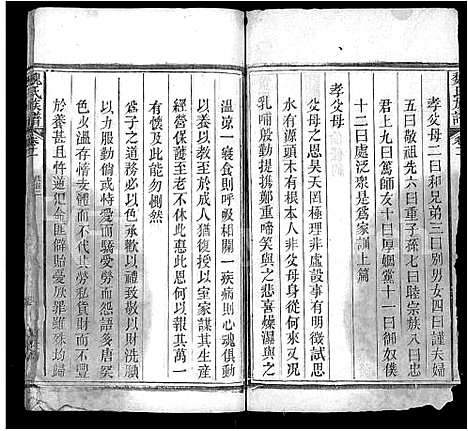 孝父母二曰和兄弟三曰別男女四曰謹夫婦
五曰敬祖先六曰重子孫七曰睦宗族八曰忠
君上九曰篤師友十曰厚姻黨十一曰御奴僕
十二曰處泛衆是爲家訓上篇
孝父母
父母之恩昊天罔極理非虛設事有明徵試思
水有源木有根本人非父母身從何來又况
乳哺殷勤提携鄭重啼笑與之悲喜燥濕與之
溫涼一寢食則呼吸相關一疾病則心魂俱動
以養以教至於成人猶復授以室家謀其生產
經營保護至老不休此惠此恩何以報其萬一
有懷及此能勿惻然
爲子之道務必以色承歡以禮致敬以財洗腆
以力服勤古之
色火溫存情友僅而不代其勞私貨財而不豐
於養甚且
魏氏族譜
卷二